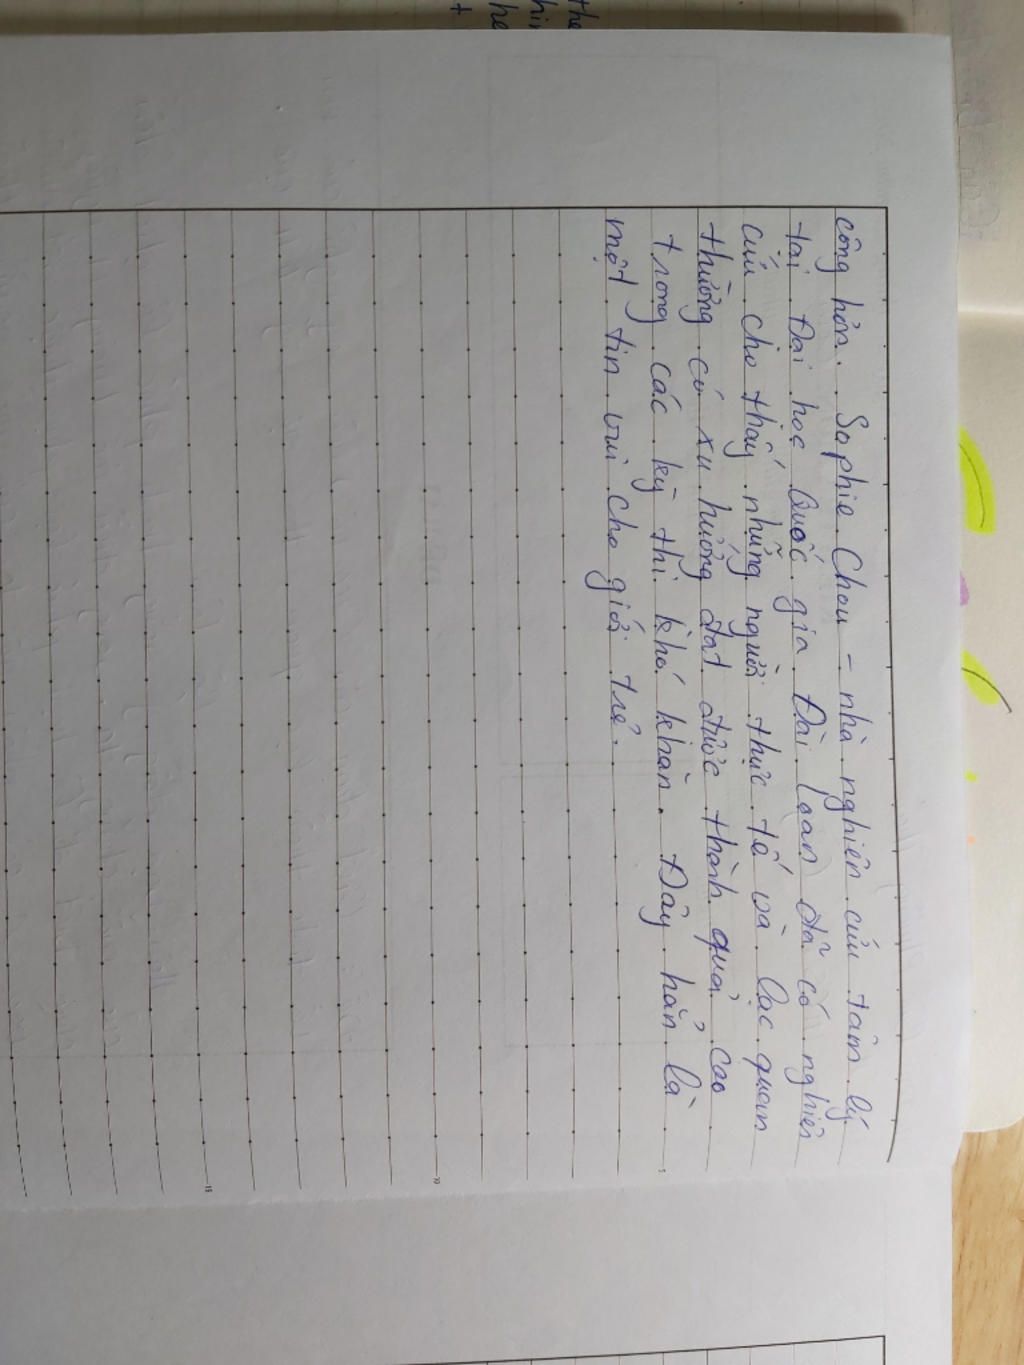 công hơn. Sophie Chou - nhà nghiên cứu tâm lý
tại Đại học Quốc gia Đài Loan đã có nghiên
cứu cho thấy những người thực tế và lạc quan
thường có xu hướng đạt được thành quả cao
trong các kỳ thi khó khăn. Đây hẳn là
một tin vui cho giới trẻ.
5
10
15
the
he
+